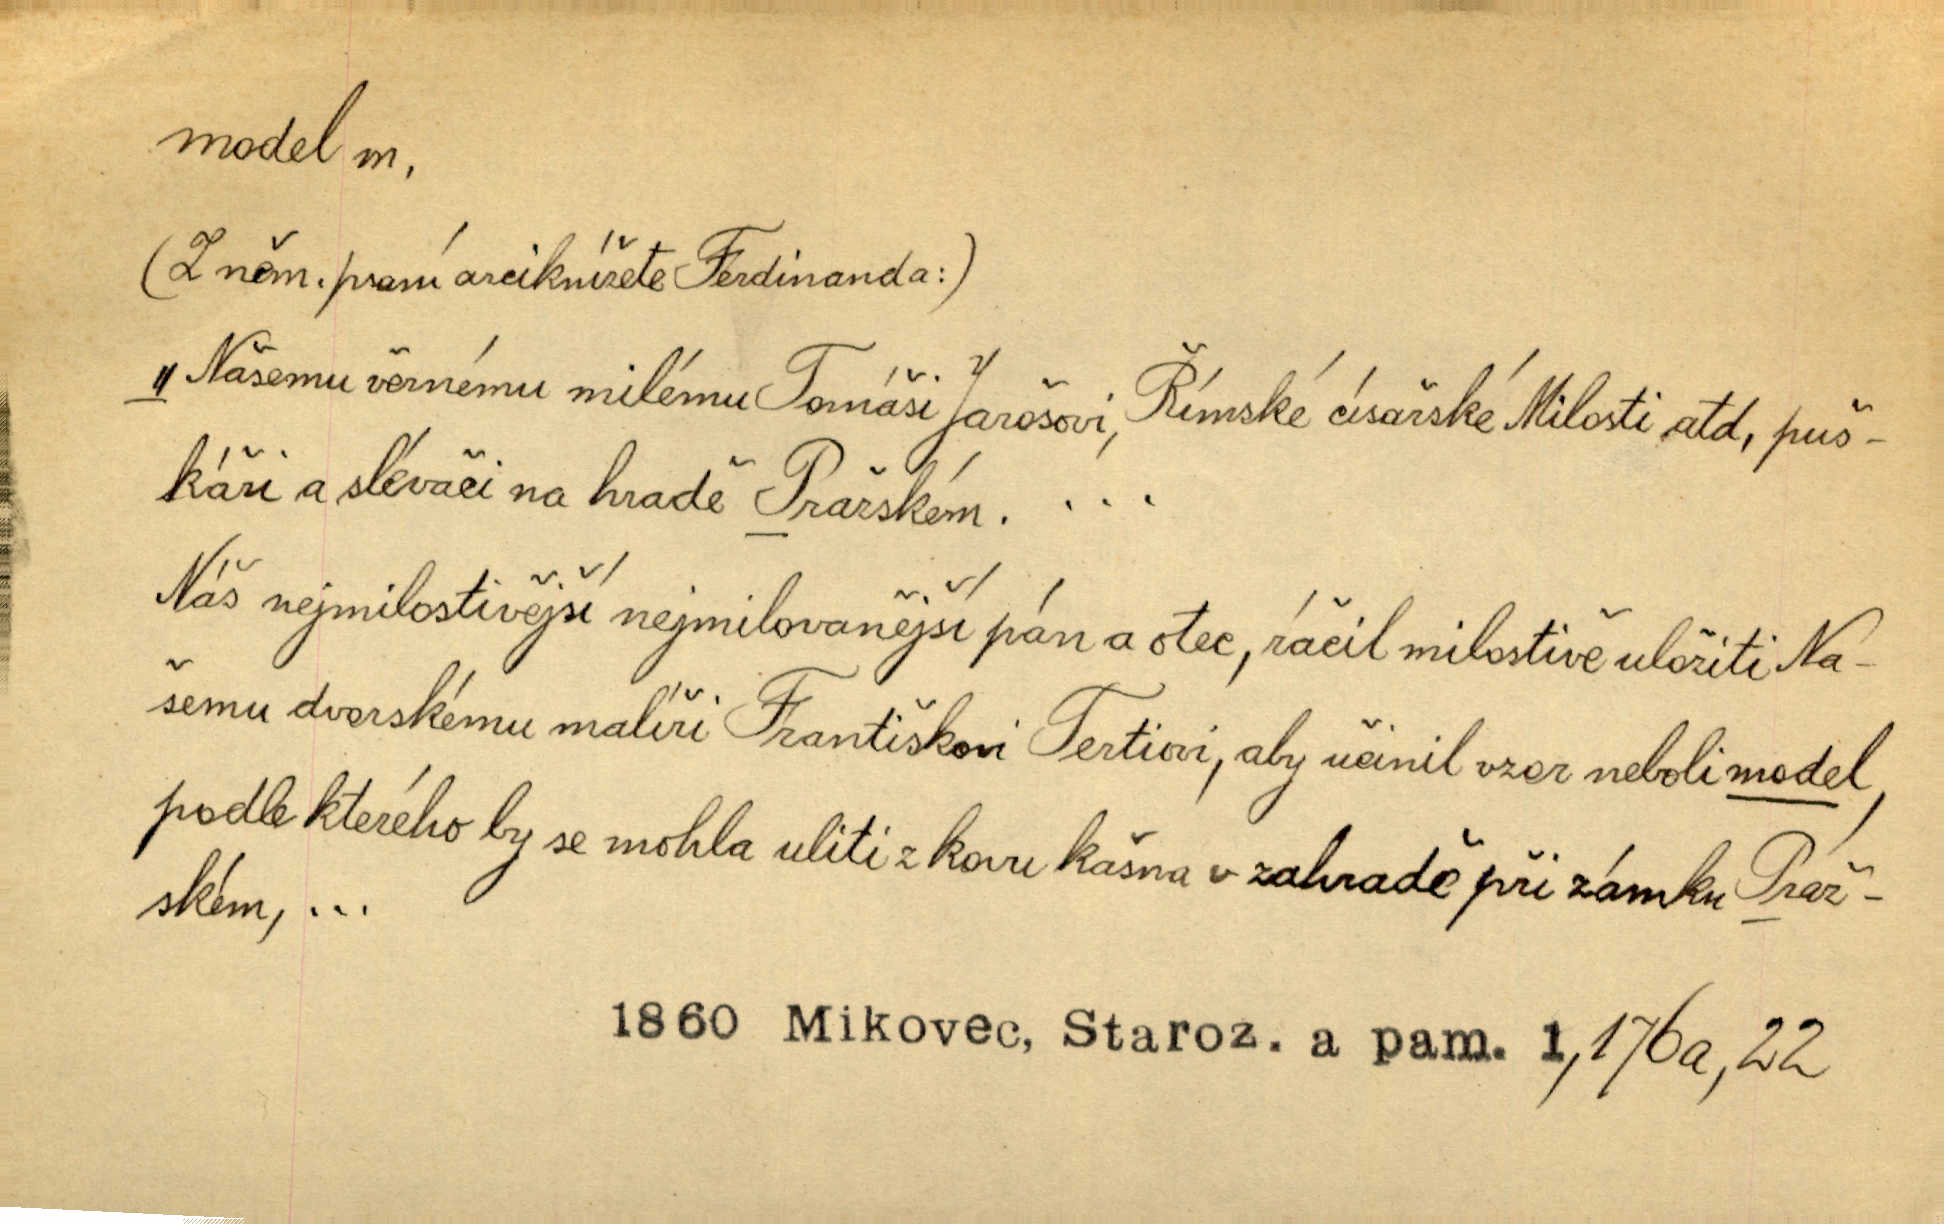 model m.
(Z něm. psaní arciknížete Ferdinanda:)
"Našemu věrnému milému Tomáši Jarošovi, Římské císařské Milosti atd, puš-
káři a slévači na hradě Pražském. ...
Náš nejmilostivější nejmilovanější pán a otec, ráčil milostivě uložiti Na-
šemu dvorskému malíři Františkovi Tertiovi, aby učinil vzor neboli model,
podle kterého by se mohla uliti z kovu kašna v zahradě při zámku Praž-
ském, ...
1860 Mikovec, Staroz. a pam. 1, 176a, 22